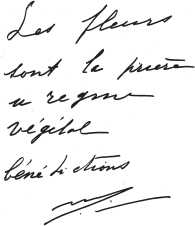 Les fleurs
sont la prière
u regne
végétal
bénédictions